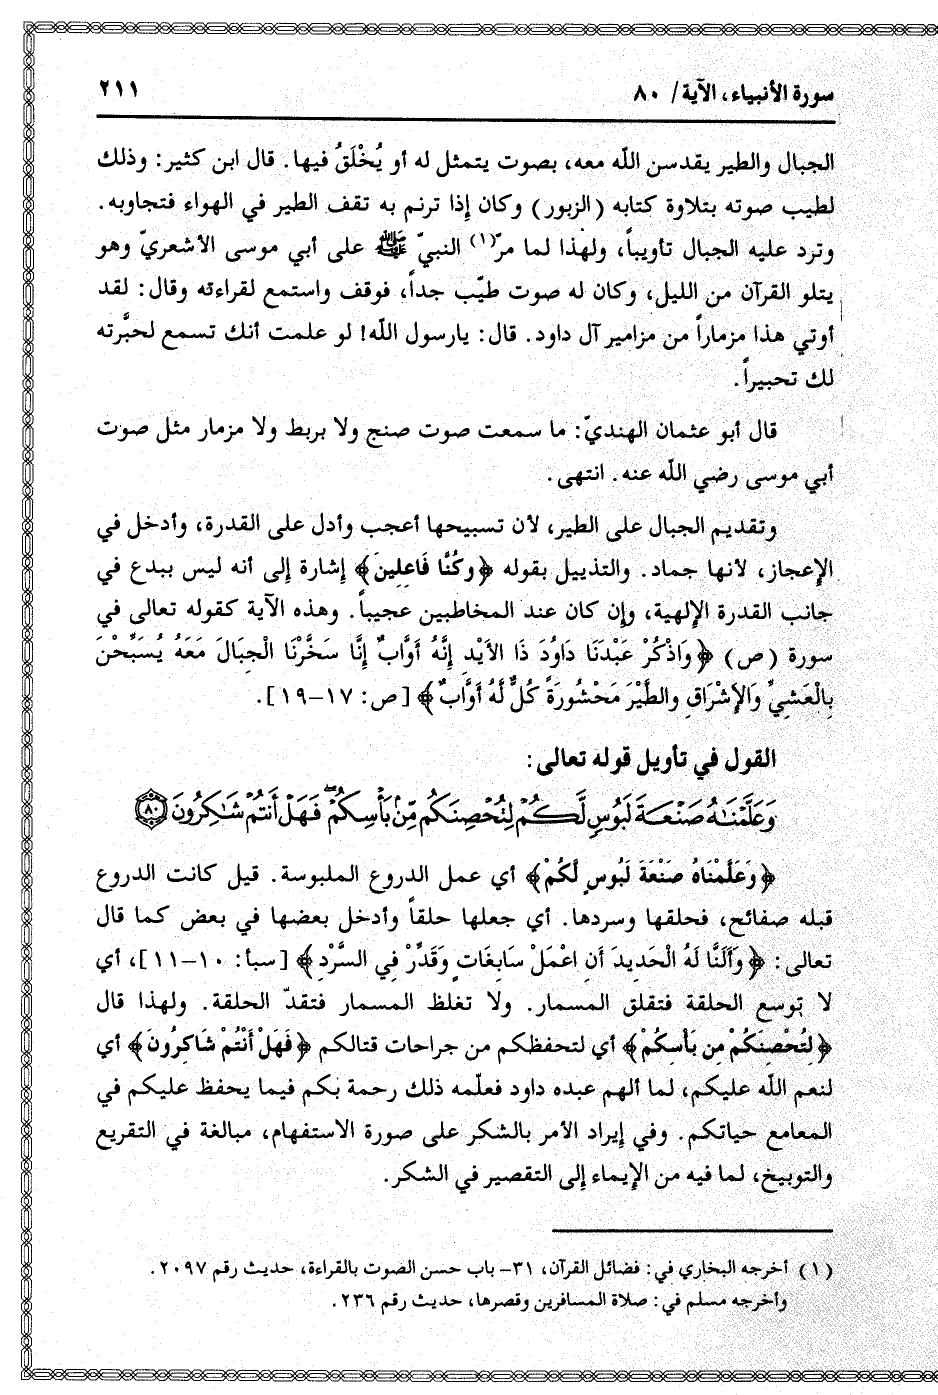 سورة الأنبياء، الآية/ ٨٠
٢١١
الجبال والطير يقدسن اللّه معه، بصوت يتمثل له أو يُخْلَقُ فيها. قال ابن كثير: وذلك
لطيب صوته بتلاوة كتابه (الزبور) وكان إذا ترنم به تقف الطير في الهواء فتجاوبه.
وترد عليه الجبال تأويباً، ولهذا لما مرّ(١) النبيّ ﷺ على أبي موسى الأشعريّ وهو
يتلو القرآن من الليل، وكان له صوت طيّب جداً، فوقف واستمع لقراءته وقال: لقد
أوتي هذا مزماراً من مزامير آل داود. قال: يارسول اللّه! لو علمت أنك تسمع لحبَّرته
لك تحبيراً.
قال أبو عثمان الهنديّ: ما سمعت صوت صنج ولا بربط ولا مزمار مثل صوت
أبي موسى رضي اللّه عنه. انتهى.
وتقديم الجبال على الطير، لأن تسبيحها أعجب وأدل على القدرة، وأدخل في
الإعجاز، لأنها جماد. والتذييل بقوله ﴿وكُنَّا فَاعلِينَ﴾ إشارة إلى أنه ليس ببدع في
جانب القدرة الإلهية، وإن كان عند المخاطبين عجيباً. وهذه الآية كقوله تعالى في
سورة (ص) ﴿وَاذْكُرْ عَبْدَنَا دَاوُدَ ذَا الأَيْدِ إِنَّهُ أَوَّابٌ إِنَّا سَخَّرْنَا الْجِبَالَ مَعَهُ يُسَبِّحْنَ
بِالْعَشِيِّ وَالإِشْرَاقِ والطَّيْرَ مَحْشُورَةً كُلٌّ لَهُ أَوَّابٌ﴾ [ص: ١٧-١٩].
القول في تأويل قوله تعالى:
وَعَلَّمْنَـٰهُ صَنْعَةَ لَبُوسٍ لَّكُمْ لِتُحْصِنَكُم مِّنۢ بَأْسِكُمْ ۖ فَهَلْ أَنتُمْ شَـٰكِرُونَ ٨٠
﴿وَعَلَّمْنَاهُ صَنْعَةَ لَبُوسٍ لَكُمْ﴾ أي عمل الدروع الملبوسة. قيل كانت الدروع
قبله صفائح، فحلقها وسردها. أي جعلها حلقاً وأدخل بعضها في بعض كما قال
تعالى: ﴿وَأَلَنَّا لَهُ الْحَدِيدَ أَنِ اعْمَلْ سَابِغَاتٍ وَقَدِّرْ فِي السَّرْدِ﴾ [سبأ: ١٠-١١]، أي
لا توسع الحلقة فتقلق المسمار. ولا تغلظ المسمار فتقدّ الحلقة. ولهذا قال
﴿لِتُحْصِنَكُمْ مِن بَأْسِكُمْ﴾ أي لتحفظكم من جراحات قتالكم ﴿فَهَلْ أَنْتُمْ شَاكِرُونَ﴾ أي
لنعم اللّه عليكم، لما ألهم عبده داود فعلّمه ذلك رحمة بكم فيما يحفظ عليكم في
المعامع حياتكم. وفي إيراد الأمر بالشكر على صورة الاستفهام، مبالغة في التقريع
والتوبيخ، لما فيه من الإيماء إلى التقصير في الشكر.
(١) أخرجه البخاري في: فضائل القرآن، ٣١- باب حسن الصوت بالقراءة، حديث رقم ٢٠٩٧.
وأخرجه مسلم في: صلاة المسافرين وقصرها، حديث رقم ٢٣٦.